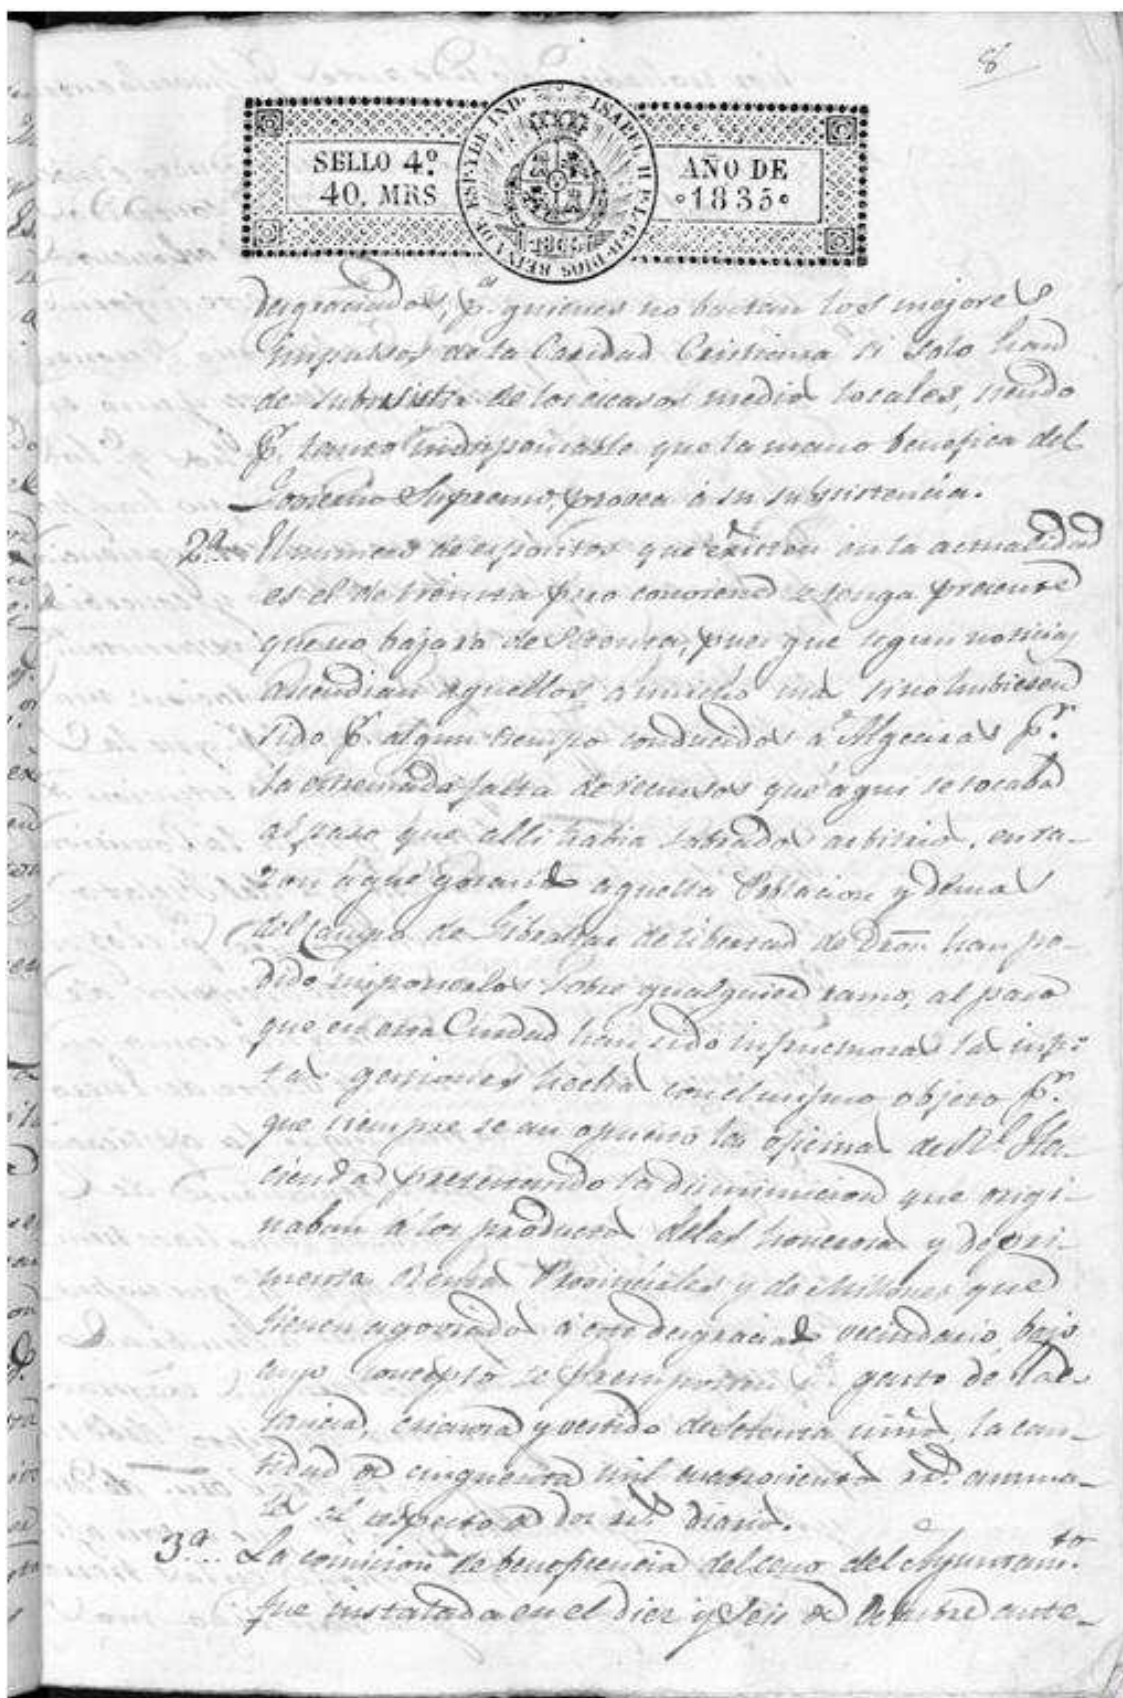 8
SELLO 4º
40. MRS
ISABEL II P. L. G. D. DIOS REINA DE ESP. Y DE IND.
1835
AÑO DE
1835
desgraciados, pª quienes no bastan los mejores
impulsos de la Caridad Cristiana si solo han
de subsistir de los escasos medios locales, siendo
p.r tanto indispensable que la mano benefica del
Gobierno Supremo, provea á su subsistencia.
2ª El numero de espósitos que existen en la actualidad
es el de treinta pero conviene se tenga presente
que no bajara de Setenta, pues que segun noticias
ascendian aquellos a mucho mas si no hubiesen
sido p.r algun tiempo conducidos a Algeciras p.r
la estremada falta de recursos que aqui se tocaba
al paso que alli habia sobrados arbitrios, en ra-
zon á que gozando aquella Poblacion y demas
del Campo de Gibraltar de libertad de Dros. han po-
dido imponerlos sobre qualquier ramo, al paso
que en esta Ciudad han sido infructuosas las infi-
tas gestiones hechas con el mismo objeto p.r
que siempre se an opuesto las oficinas de Rl. Ha-
cienda presentando la disminucion que origi-
naban á los productos de las honerosas y depri-
mentes Rentas Provinciales y de Millones que
tienen agoviado á este desgraciado vecindario, bajo
cuyo concepto se presuponen pª gasto de lac-
tancia, crianza y vestido de Setenta niños, la can-
tidad de cinquenta mil cuatrocientos rs. anua-
les al respecto de dos rs. diarios.
3ª La comision de beneficencia del seno del Ayuntamto.
fue instalada en el diez y seis de Octubre ante-